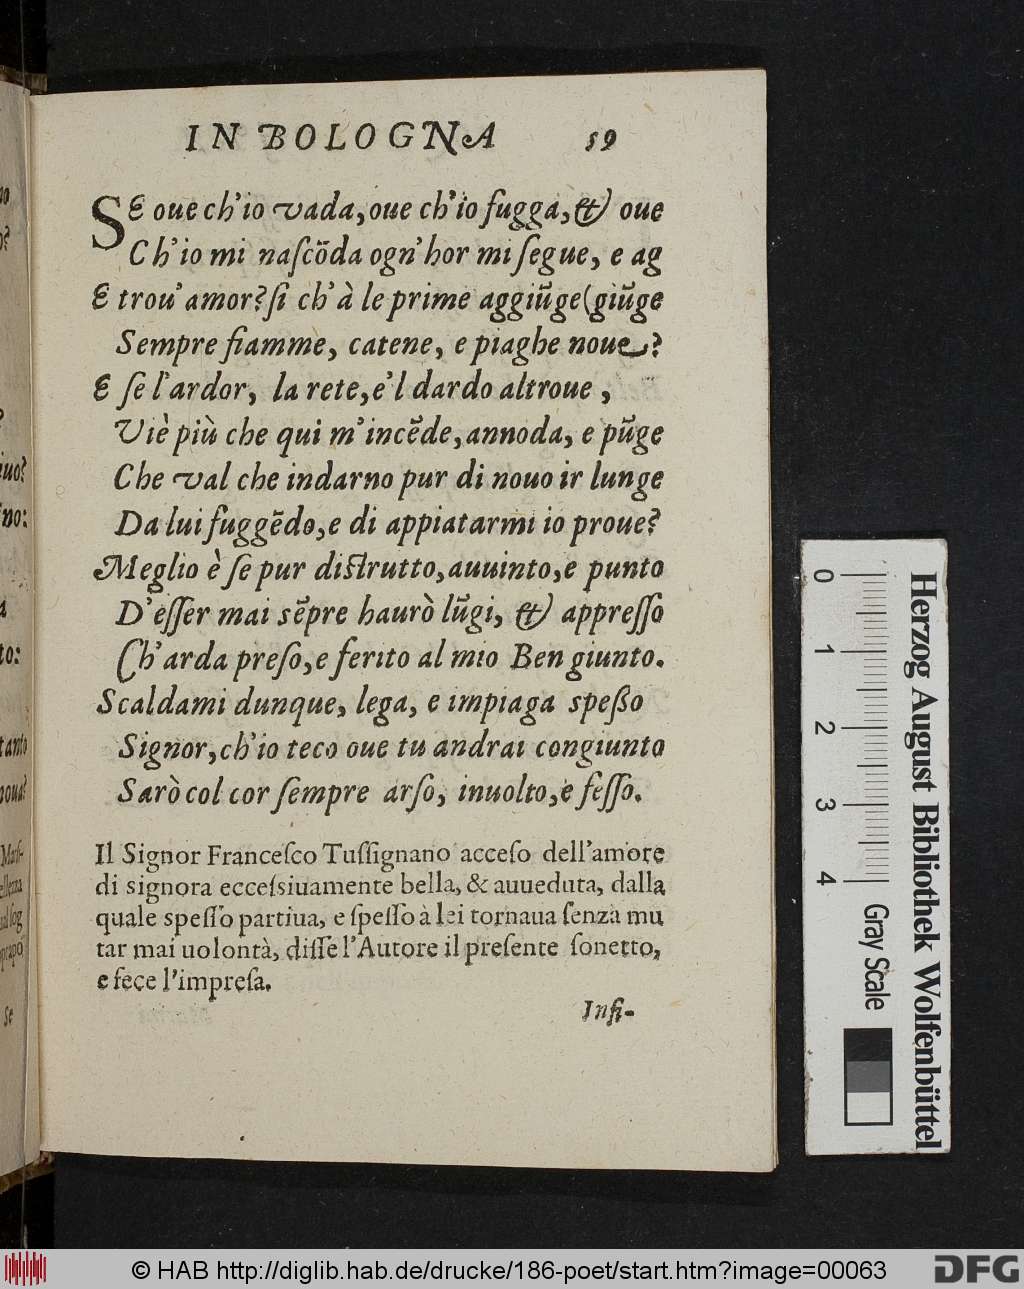 IN BOLOGNA 59
SE oue ch'io vada, oue ch'io fugga, & oue
Ch'io mi naſcõda ogn'hor mi ſegue, e ag
E trou' amor? ſi ch'à le prime aggiũge (giũge
Sempre fiamme, catene, e piaghe noue?
E ſe l'ardor, la rete, e'l dardo altroue,
Viè più che qui m'incẽde, annoda, e pũge
Che val che indarno pur di nouo ir lunge
Da lui fuggẽdo, e di appiatarmi io proue?
Meglio è ſe pur diſtrutto, auuinto, e punto
D'eſſer mai sẽpre haurò lũgi, & appreſſo
Ch'arda preſo, e ferito al mio Ben giunto.
Scaldami dunque, lega, e impiaga speßo
Signor, ch'io teco oue tu andrai congiunto
Sarò col cor ſempre arſo, inuolto, e feſſo.
Il Signor Franceſco Tuſſignano acceſo dell'amore
di signora ecceſsiuamente bella, & auueduta, dalla
quale speſſo partiua, e ſpeſſo à lei tornaua ſenza mu
tar mai uolontà, diſſe l'Autore il preſente ſonetto,
e fece l'impreſa.
Inſi-
iuo?
no:
to:
tanto
noua?
Se
0 1 2 3 4
Herzog August Bibliothek Wolfenbüttel
Gray Scale
© HAB http://diglib.hab.de/drucke/186-poet/start.htm?image=00063
DFG